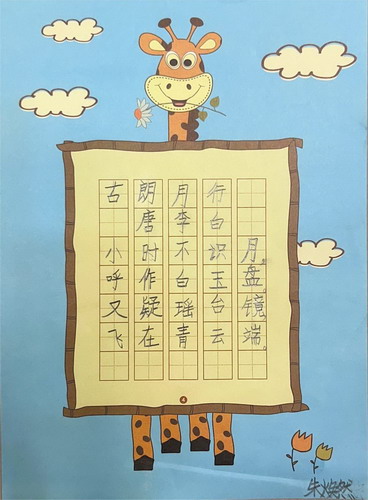 古朗月行
唐李白
小时不识月，
呼作白玉盘。
又疑瑶台镜，
飞在青云端。
4